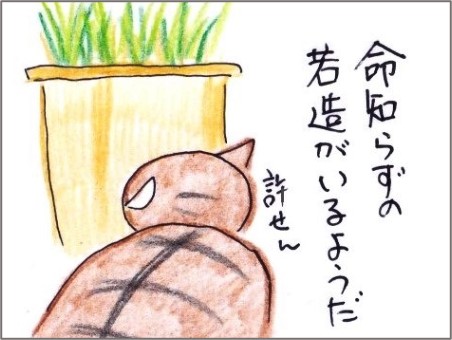 命知らずの
若造がいるようだ
許せん